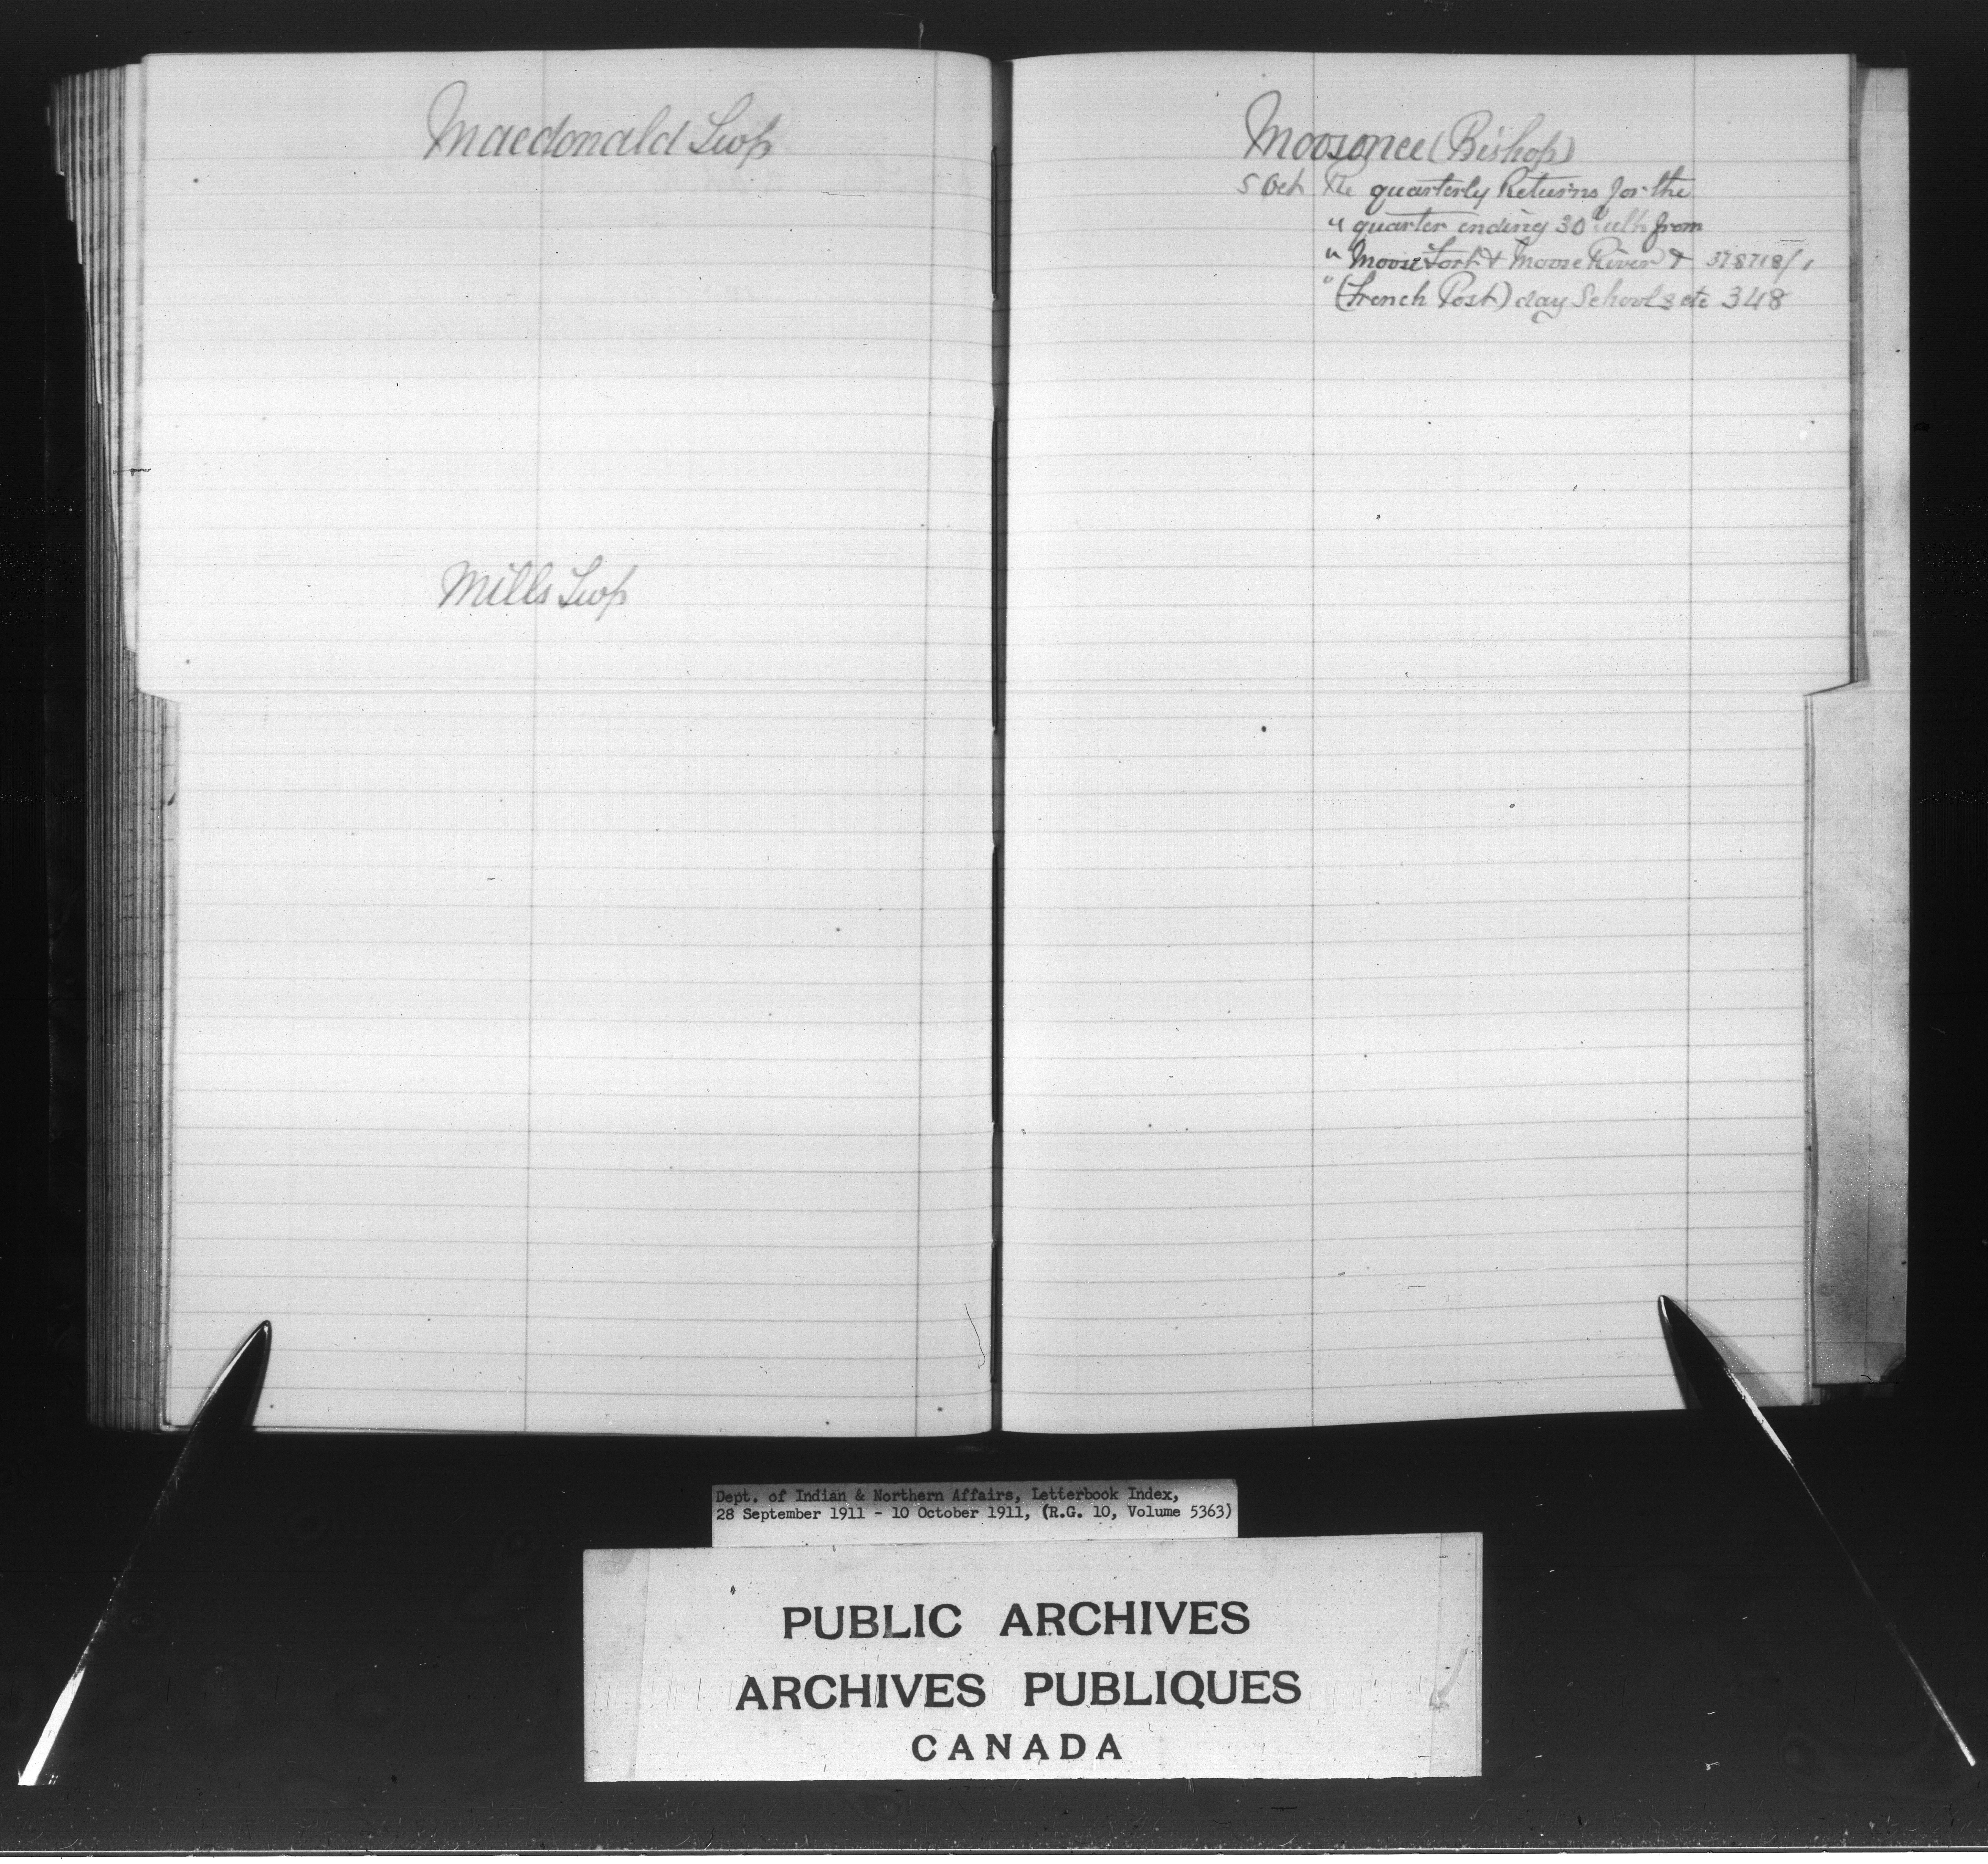 Macdonald Twp
Mills Twp
Moosonee (Bishop)
5 Oct Re quarterly Returns for the
" quarter ending 30 ulto from
" Moose Fort & Moose River & 378718/1
" (French Post) day Schools etc 348
Dept. of Indian & Northern Affairs, Letterbook Index,
28 September 1911 - 10 October 1911, (R.G. 10, Volume 5363)
PUBLIC ARCHIVES
ARCHIVES PUBLIQUES
CANADA